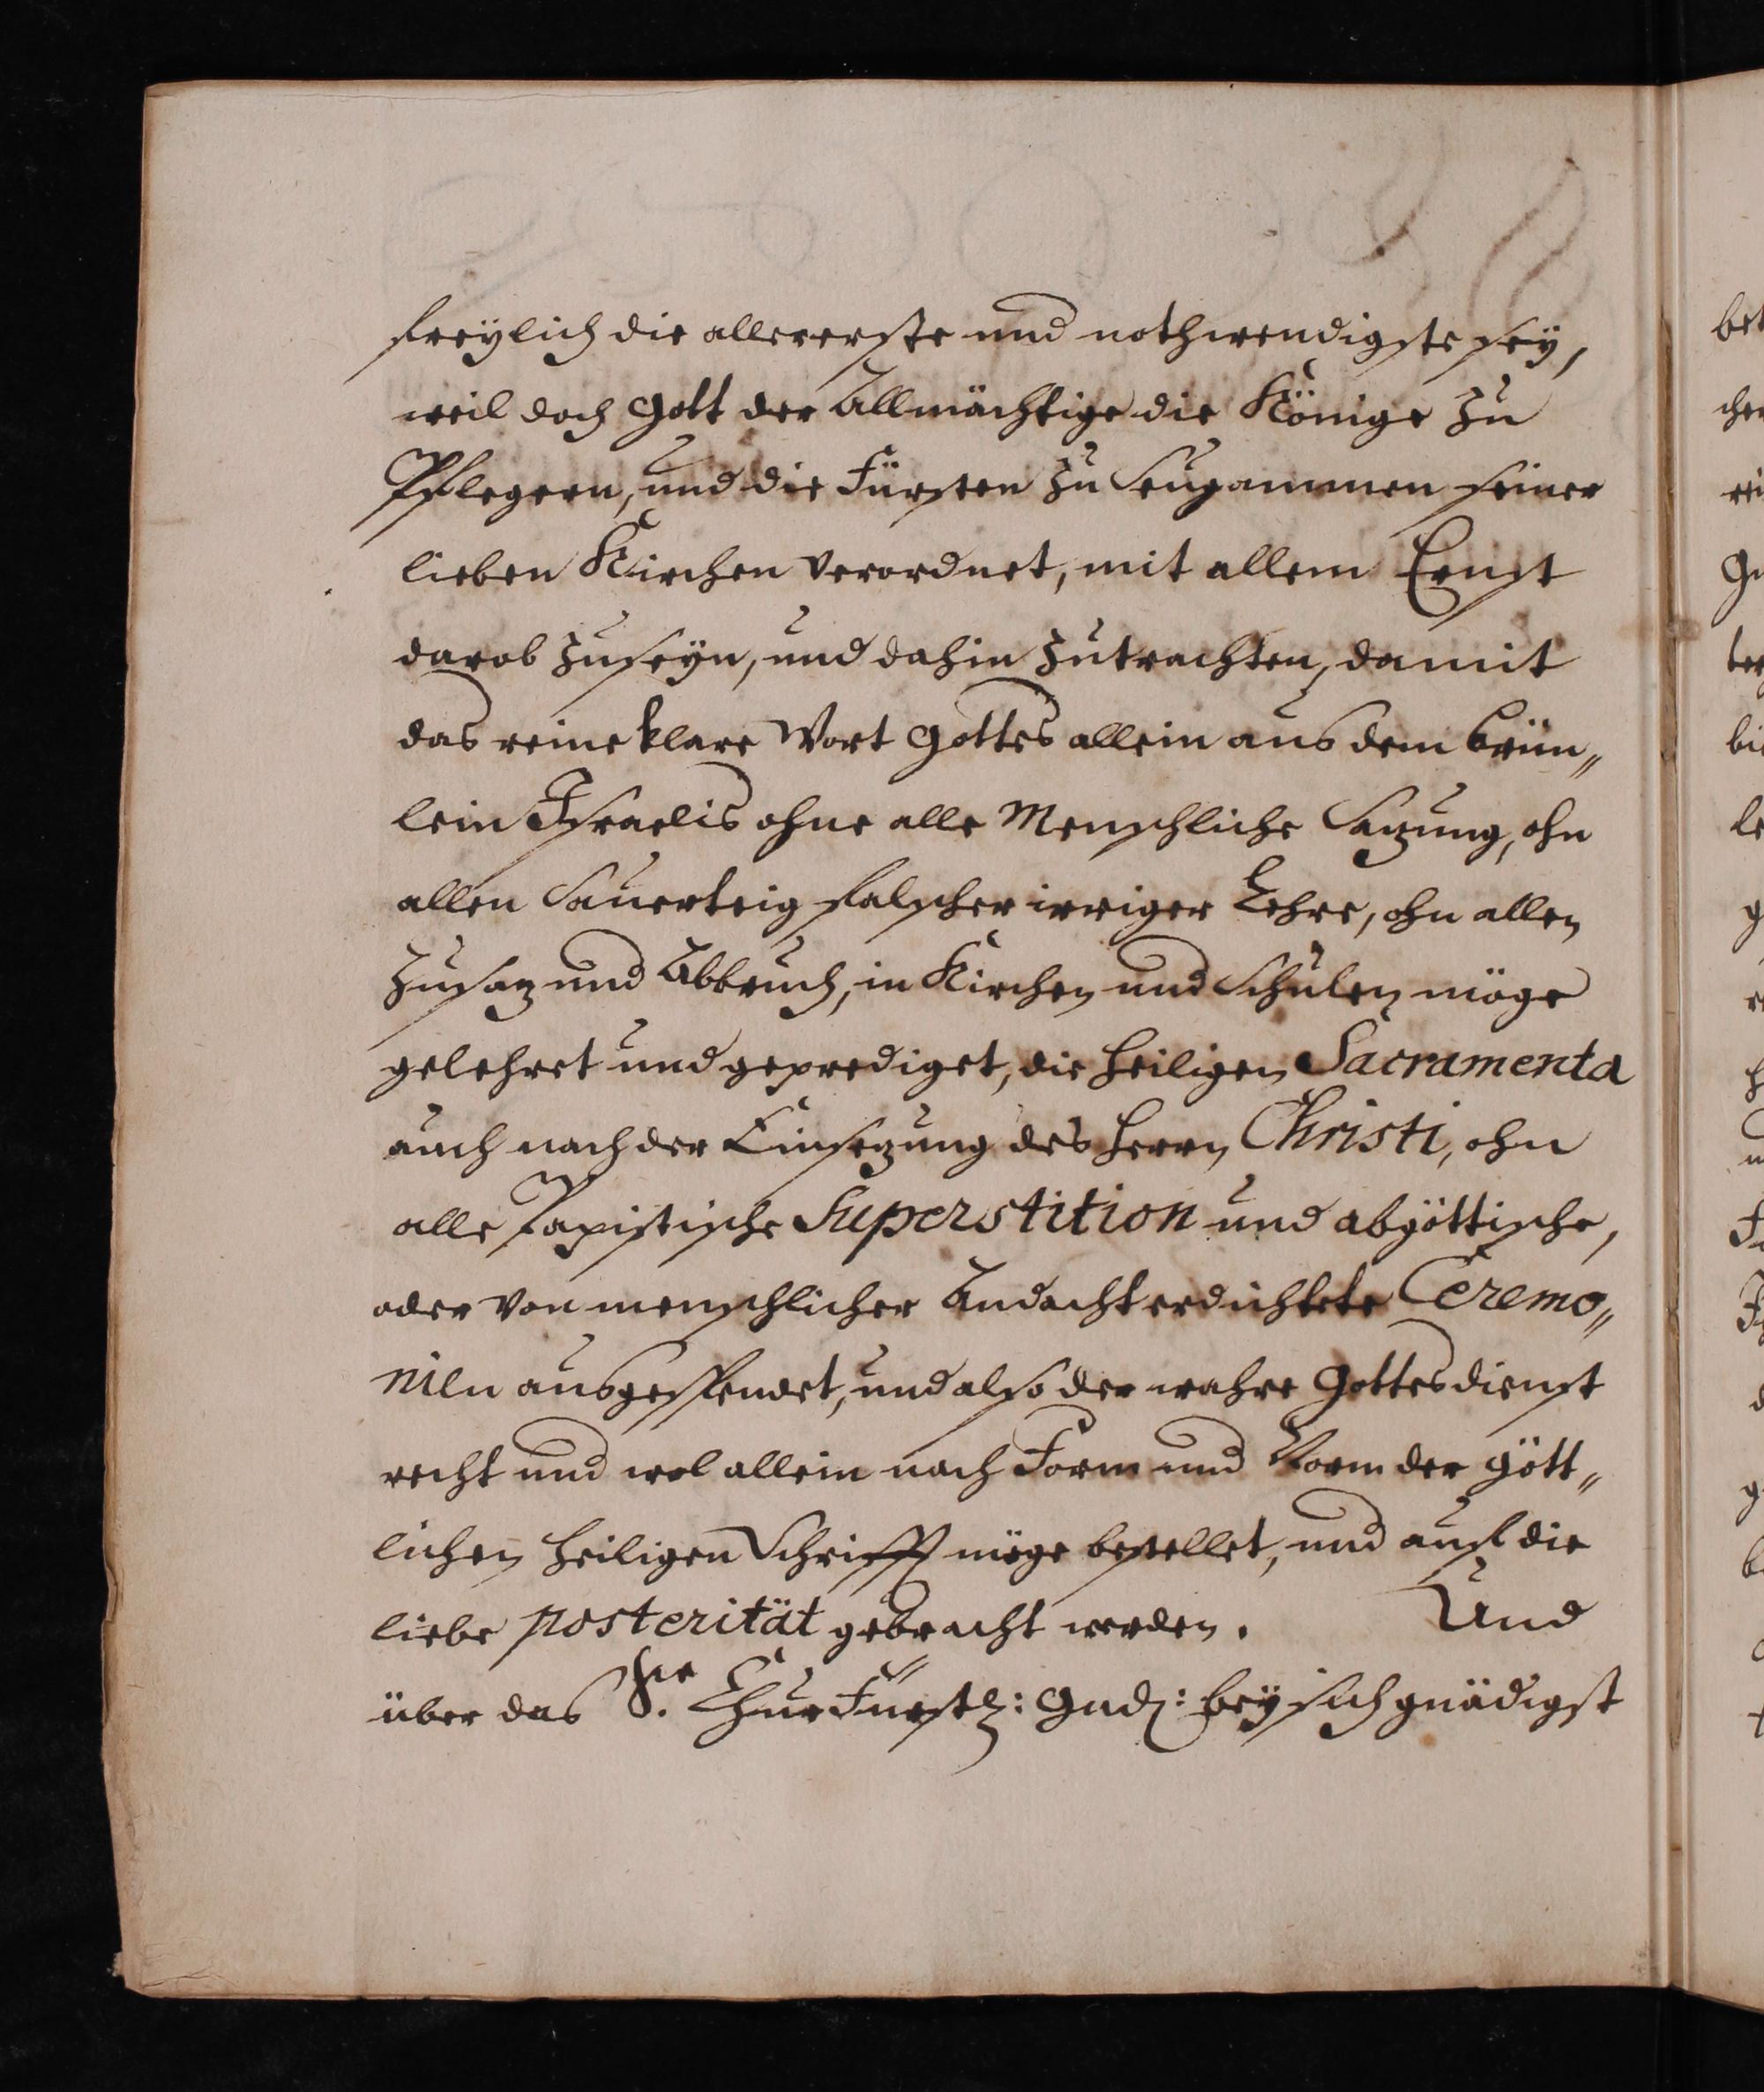 freÿlich die allererste und nothwendigste seÿ,
weil doch Gott der Allmächtige die Könige zu
Pflegern, und die Fürsten zu Seugammen seiner
lieben Kirchen verordnet, mit allem Ernst
darob zuseÿn, und dahin zutrachten, damit
das reine klare Wort Gottes allein aus dem brün„
lein Israelis ohne alle Menschliche Satzung, ohn
allen Sauerteig falscher irriger Lehre, ohn allen
Zusatz und Abbruch, in Kirchen und Schulen möge
gelehret und geprediget, die heiligen Sacramenta
auch nach der Einsetzung des Herrn Christi, ohn
alle Papistische Superstition und abgöttische,
oder von menschlicher Andacht erdichtete Ceremo„
nien ausgespendet, und also der wahre Gottesdienst
recht und wol allein nach Form und Norm der gött„
lichen heiligen Schrifft möge bestellet, und auf die
liebe posterität gebracht werden. Und
über das S.e ChurFürstl: Gnd: beÿ sich gnädigst
bet
cher
rei
ter
bie
le